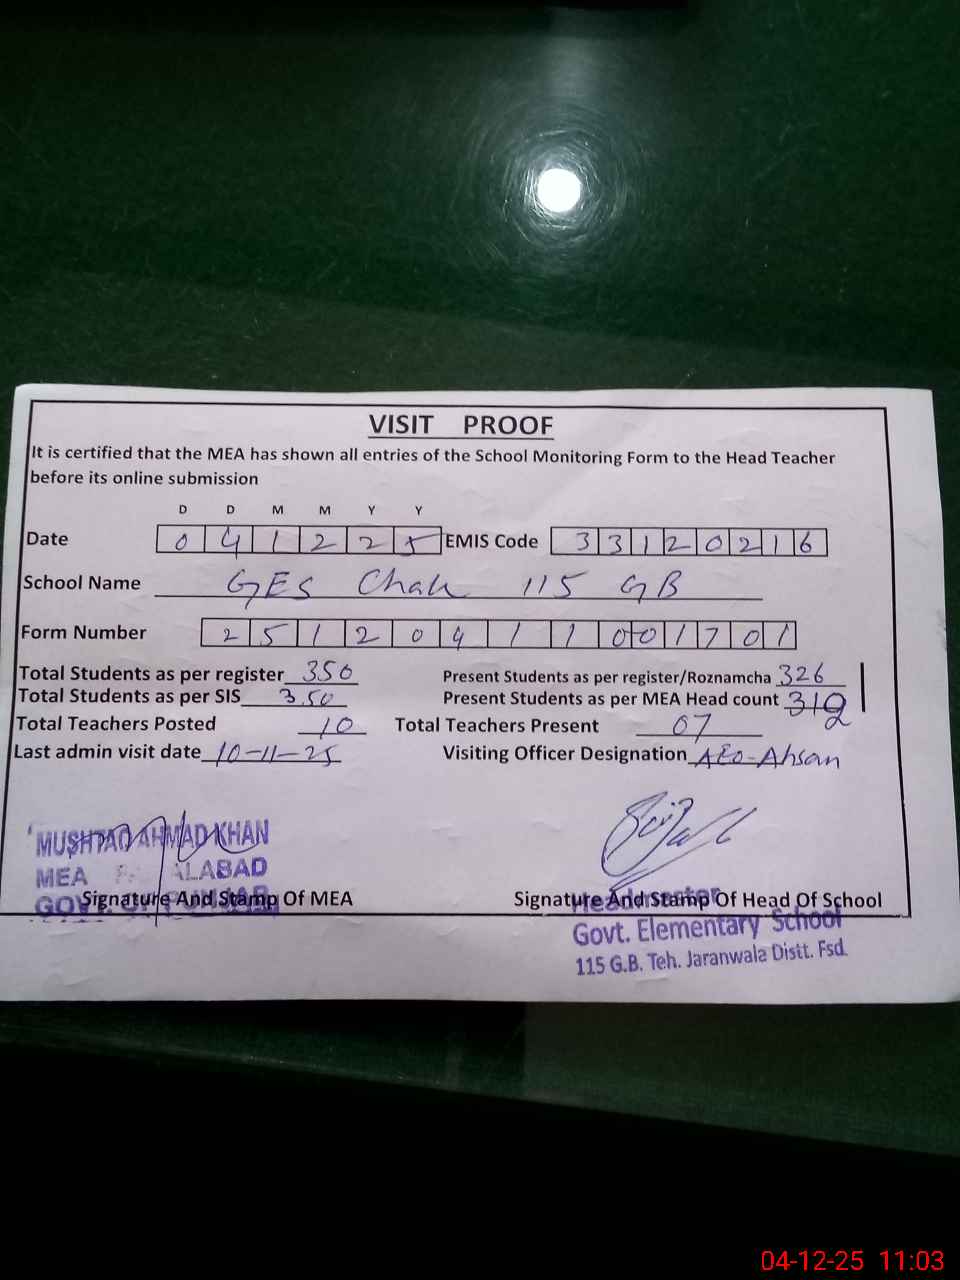 VISIT PROOF
It is certified that the MEA has shown all entries of the School Monitoring Form to the Head Teacher
before its online submission
D D M M Y Y
Date 0 4 1 2 2 5 EMIS Code 3 3 1 2 0 2 1 6
School Name GES Chak 115 GB
Form Number 2 5 1 2 0 4 1 1 0 0 1 7 0 1
Total Students as per register 350 Present Students as per register/Roznamcha 326
Total Students as per SIS 350 Present Students as per MEA Head count 312
Total Teachers Posted 10 Total Teachers Present 07
Last admin visit date 10-11-25 Visiting Officer Designation AEO-Ahsan
MUSHTAQ AHMAD KHAN
MEA ALABAD
GOVT. OF PUNJAB
Signature And Stamp Of MEA Signature And Stamp Of Head Of School
Headmaster
Govt. Elementary School
115 G.B. Teh. Jaranwala Distt. Fsd.
04-12-25 11:03